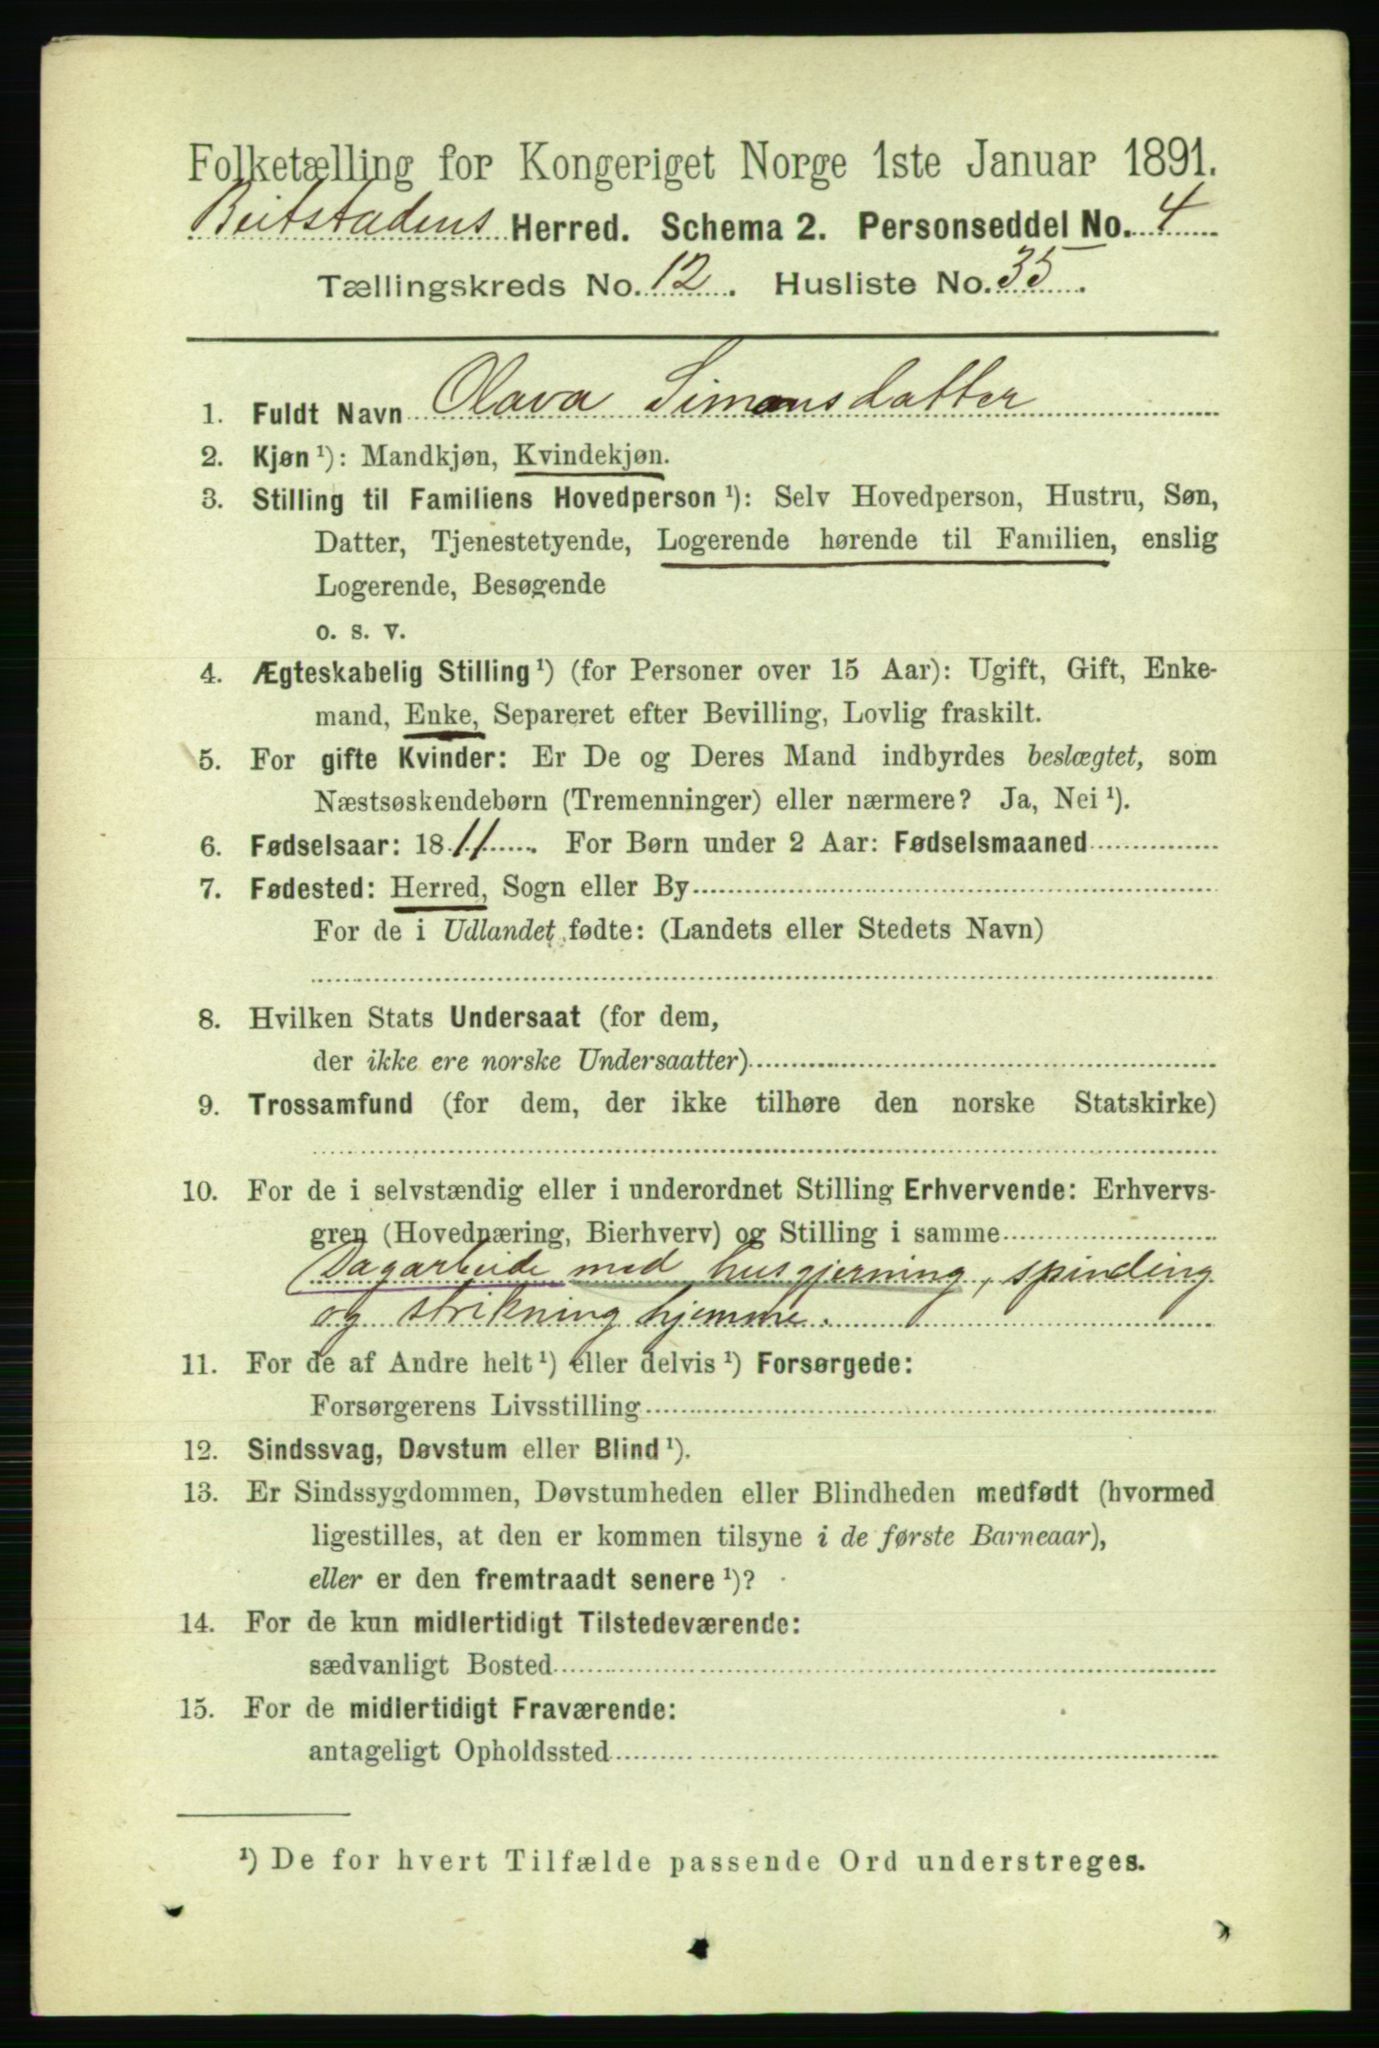 Folketælling for Kongeriget Norge 1ste Januar 1891.
Beitstadens Herred. Schema 2. Personseddel No. 4
Tællingskreds No. 12. Husliste No. 35.
1. Fuldt Navn Olava Simonsdatter
2. Kjøn ¹): Mandkjøn, Kvindekjøn.
3. Stilling til Familiens Hovedperson ¹): Selv Hovedperson, Hustru, Søn,
Datter, Tjenestetyende, Logerende hørende til Familien, enslig
Logerende, Besøgende
o. s. v.
4. Ægteskabelig Stilling ¹) (for Personer over 15 Aar): Ugift, Gift, Enke-
mand, Enke, Separeret efter Bevilling, Lovlig fraskilt.
5. For gifte Kvinder: Er De og Deres Mand indbyrdes beslægtet, som
Næstsøskendebørn (Tremenninger) eller nærmere? Ja, Nei ¹).
6. Fødselsaar: 1811. For Børn under 2 Aar: Fødselsmaaned
7. Fødested: Herred, Sogn eller By
For de i Udlandet fødte: (Landets eller Stedets Navn)
8. Hvilken Stats Undersaat (for dem,
der ikke ere norske Undersaatter)
9. Trossamfund (for dem, der ikke tilhøre den norske Statskirke)
10. For de i selvstændig eller i underordnet Stilling Erhvervende: Erhvervs-
gren (Hovednæring, Bierhverv) og Stilling i samme
Dagarbeide med husgjerning, spinding
og strikning hjemme.
11. For de af Andre helt ¹) eller delvis ¹) Forsørgede:
Forsørgerens Livsstilling
12. Sindssvag, Døvstum eller Blind ¹).
13. Er Sindssygdommen, Døvstumheden eller Blindheden medfødt (hvormed
ligestilles, at den er kommen tilsyne i de første Barneaar),
eller er den fremtraadt senere ¹)?
14. For de kun midlertidigt Tilstedeværende:
sædvanligt Bosted
15. For de midlertidigt Fraværende:
antageligt Opholdssted
¹) De for hvert Tilfælde passende Ord understreges.